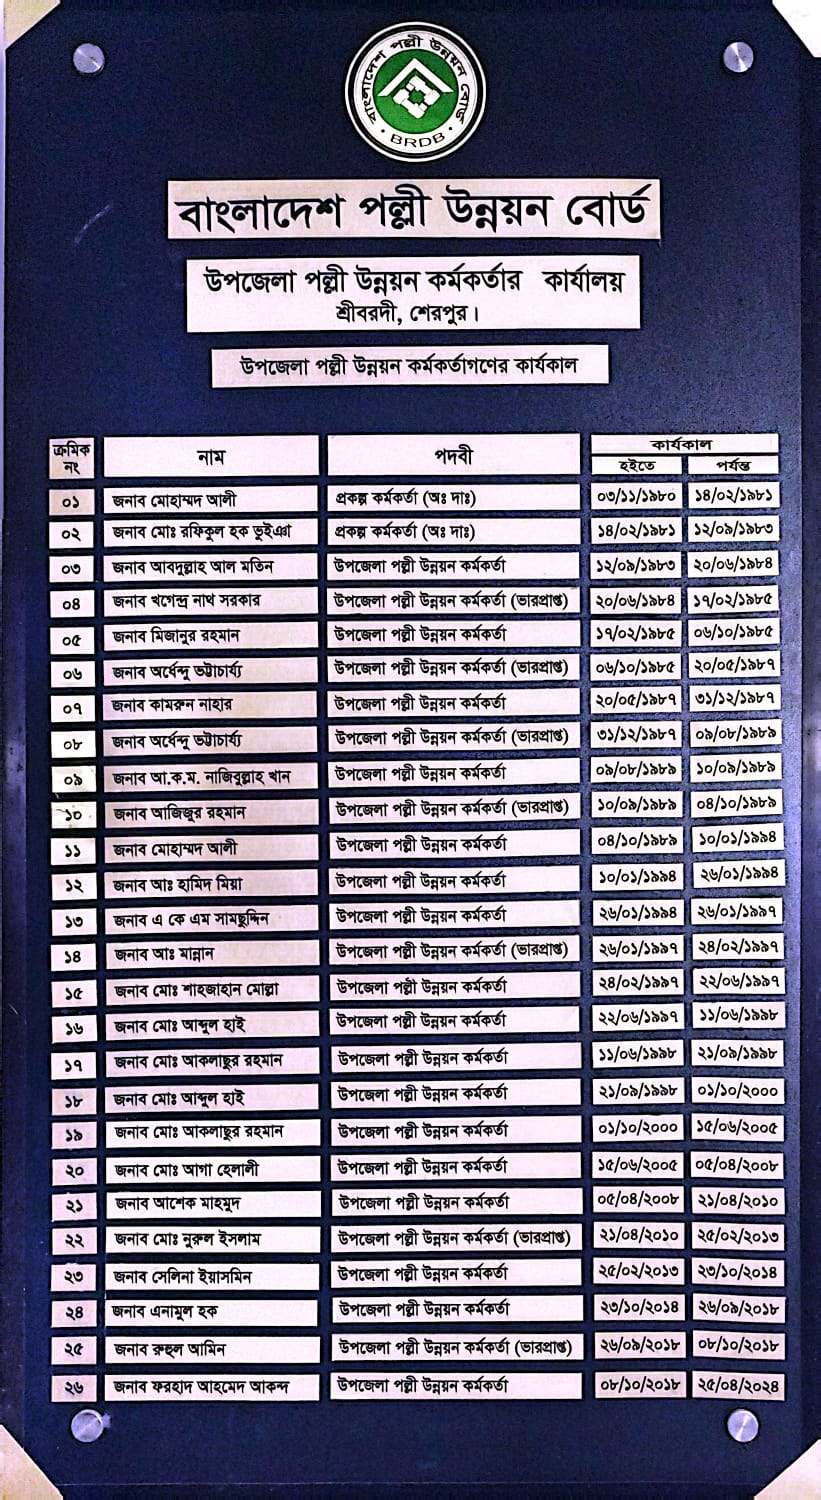 বাংলাদেশ পল্লী উন্নয়ন বোর্ড
BRDB
বাংলাদেশ পল্লী উন্নয়ন বোর্ড
উপজেলা পল্লী উন্নয়ন কর্মকর্তার কার্যালয়
শ্রীবরদী, শেরপুর।
উপজেলা পল্লী উন্নয়ন কর্মকর্তাগণের কার্যকাল
ক্রমিক নং নাম পদবী কার্যকাল
হইতে পর্যন্ত
০১ জনাব মোহাম্মদ আলী প্রকল্প কর্মকর্তা (অঃ দাঃ) ০৩/১১/১৯৮০ ১৪/০২/১৯৮১
০২ জনাব মোঃ রফিকুল হক ভুইঞা প্রকল্প কর্মকর্তা (অঃ দাঃ) ১৪/০২/১৯৮১ ১২/০৯/১৯৮৩
০৩ জনাব আবদুল্লাহ আল মতিন উপজেলা পল্লী উন্নয়ন কর্মকর্তা ১২/০৯/১৯৮৩ ২০/০৬/১৯৮৪
০৪ জনাব খগেন্দ্র নাথ সরকার উপজেলা পল্লী উন্নয়ন কর্মকর্তা (ভারপ্রাপ্ত) ২০/০৬/১৯৮৪ ১৭/০২/১৯৮৫
০৫ জনাব মিজানুর রহমান উপজেলা পল্লী উন্নয়ন কর্মকর্তা ১৭/০২/১৯৮৫ ০৬/১০/১৯৮৫
০৬ জনাব অর্ধেন্দু ভট্টাচার্য্য উপজেলা পল্লী উন্নয়ন কর্মকর্তা (ভারপ্রাপ্ত) ০৬/১০/১৯৮৫ ২০/০৫/১৯৮৭
০৭ জনাব কামরুন নাহার উপজেলা পল্লী উন্নয়ন কর্মকর্তা ২০/০৫/১৯৮৭ ৩১/১২/১৯৮৭
০৮ জনাব অর্ধেন্দু ভট্টাচার্য্য উপজেলা পল্লী উন্নয়ন কর্মকর্তা (ভারপ্রাপ্ত) ৩১/১২/১৯৮৭ ০৯/০৮/১৯৮৯
০৯ জনাব আ.ক.ম. নাজিবুল্লাহ খান উপজেলা পল্লী উন্নয়ন কর্মকর্তা ০৯/০৮/১৯৮৯ ১০/০৯/১৯৮৯
১০ জনাব আজিজুর রহমান উপজেলা পল্লী উন্নয়ন কর্মকর্তা (ভারপ্রাপ্ত) ১০/০৯/১৯৮৯ ০৪/১০/১৯৮৯
১১ জনাব মোহাম্মদ আলী উপজেলা পল্লী উন্নয়ন কর্মকর্তা ০৪/১০/১৯৮৯ ১০/০১/১৯৯৪
১২ জনাব আঃ হামিদ মিয়া উপজেলা পল্লী উন্নয়ন কর্মকর্তা ১০/০১/১৯৯৪ ২৬/০১/১৯৯৪
১৩ জনাব এ কে এম সামছুদ্দিন উপজেলা পল্লী উন্নয়ন কর্মকর্তা ২৬/০১/১৯৯৪ ২৬/০১/১৯৯৭
১৪ জনাব আঃ মান্নান উপজেলা পল্লী উন্নয়ন কর্মকর্তা (ভারপ্রাপ্ত) ২৬/০১/১৯৯৭ ২৪/০২/১৯৯৭
১৫ জনাব মোঃ শাহজাহান মোল্লা উপজেলা পল্লী উন্নয়ন কর্মকর্তা ২৪/০২/১৯৯৭ ২২/০৬/১৯৯৭
১৬ জনাব মোঃ আব্দুল হাই উপজেলা পল্লী উন্নয়ন কর্মকর্তা ২২/০৬/১৯৯৭ ১১/০৬/১৯৯৮
১৭ জনাব মোঃ আকলাছুর রহমান উপজেলা পল্লী উন্নয়ন কর্মকর্তা ১১/০৬/১৯৯৮ ২১/০৯/১৯৯৮
১৮ জনাব মোঃ আব্দুল হাই উপজেলা পল্লী উন্নয়ন কর্মকর্তা ২১/০৯/১৯৯৮ ০১/১০/২০০০
১৯ জনাব মোঃ আকলাছুর রহমান উপজেলা পল্লী উন্নয়ন কর্মকর্তা ০১/১০/২০০০ ১৫/০৬/২০০৫
২০ জনাব মোঃ আগা হেলালী উপজেলা পল্লী উন্নয়ন কর্মকর্তা ১৫/০৬/২০০৫ ০৫/০৪/২০০৮
২১ জনাব আশেক মাহমুদ উপজেলা পল্লী উন্নয়ন কর্মকর্তা ০৫/০৪/২০০৮ ২১/০৪/২০১০
২২ জনাব মোঃ নুরুল ইসলাম উপজেলা পল্লী উন্নয়ন কর্মকর্তা (ভারপ্রাপ্ত) ২১/০৪/২০১০ ২৫/০২/২০১৩
২৩ জনাব সেলিনা ইয়াসমিন উপজেলা পল্লী উন্নয়ন কর্মকর্তা ২৫/০২/২০১৩ ২৩/১০/২০১৪
২৪ জনাব এনামুল হক উপজেলা পল্লী উন্নয়ন কর্মকর্তা ২৩/১০/২০১৪ ২৬/০৯/২০১৮
২৫ জনাব রুহুল আমিন উপজেলা পল্লী উন্নয়ন কর্মকর্তা (ভারপ্রাপ্ত) ২৬/০৯/২০১৮ ০৮/১০/২০১৮
২৬ জনাব ফরহাদ আহমেদ আকন্দ উপজেলা পল্লী উন্নয়ন কর্মকর্তা ০৮/১০/২০১৮ ২৫/০৪/২০২৪